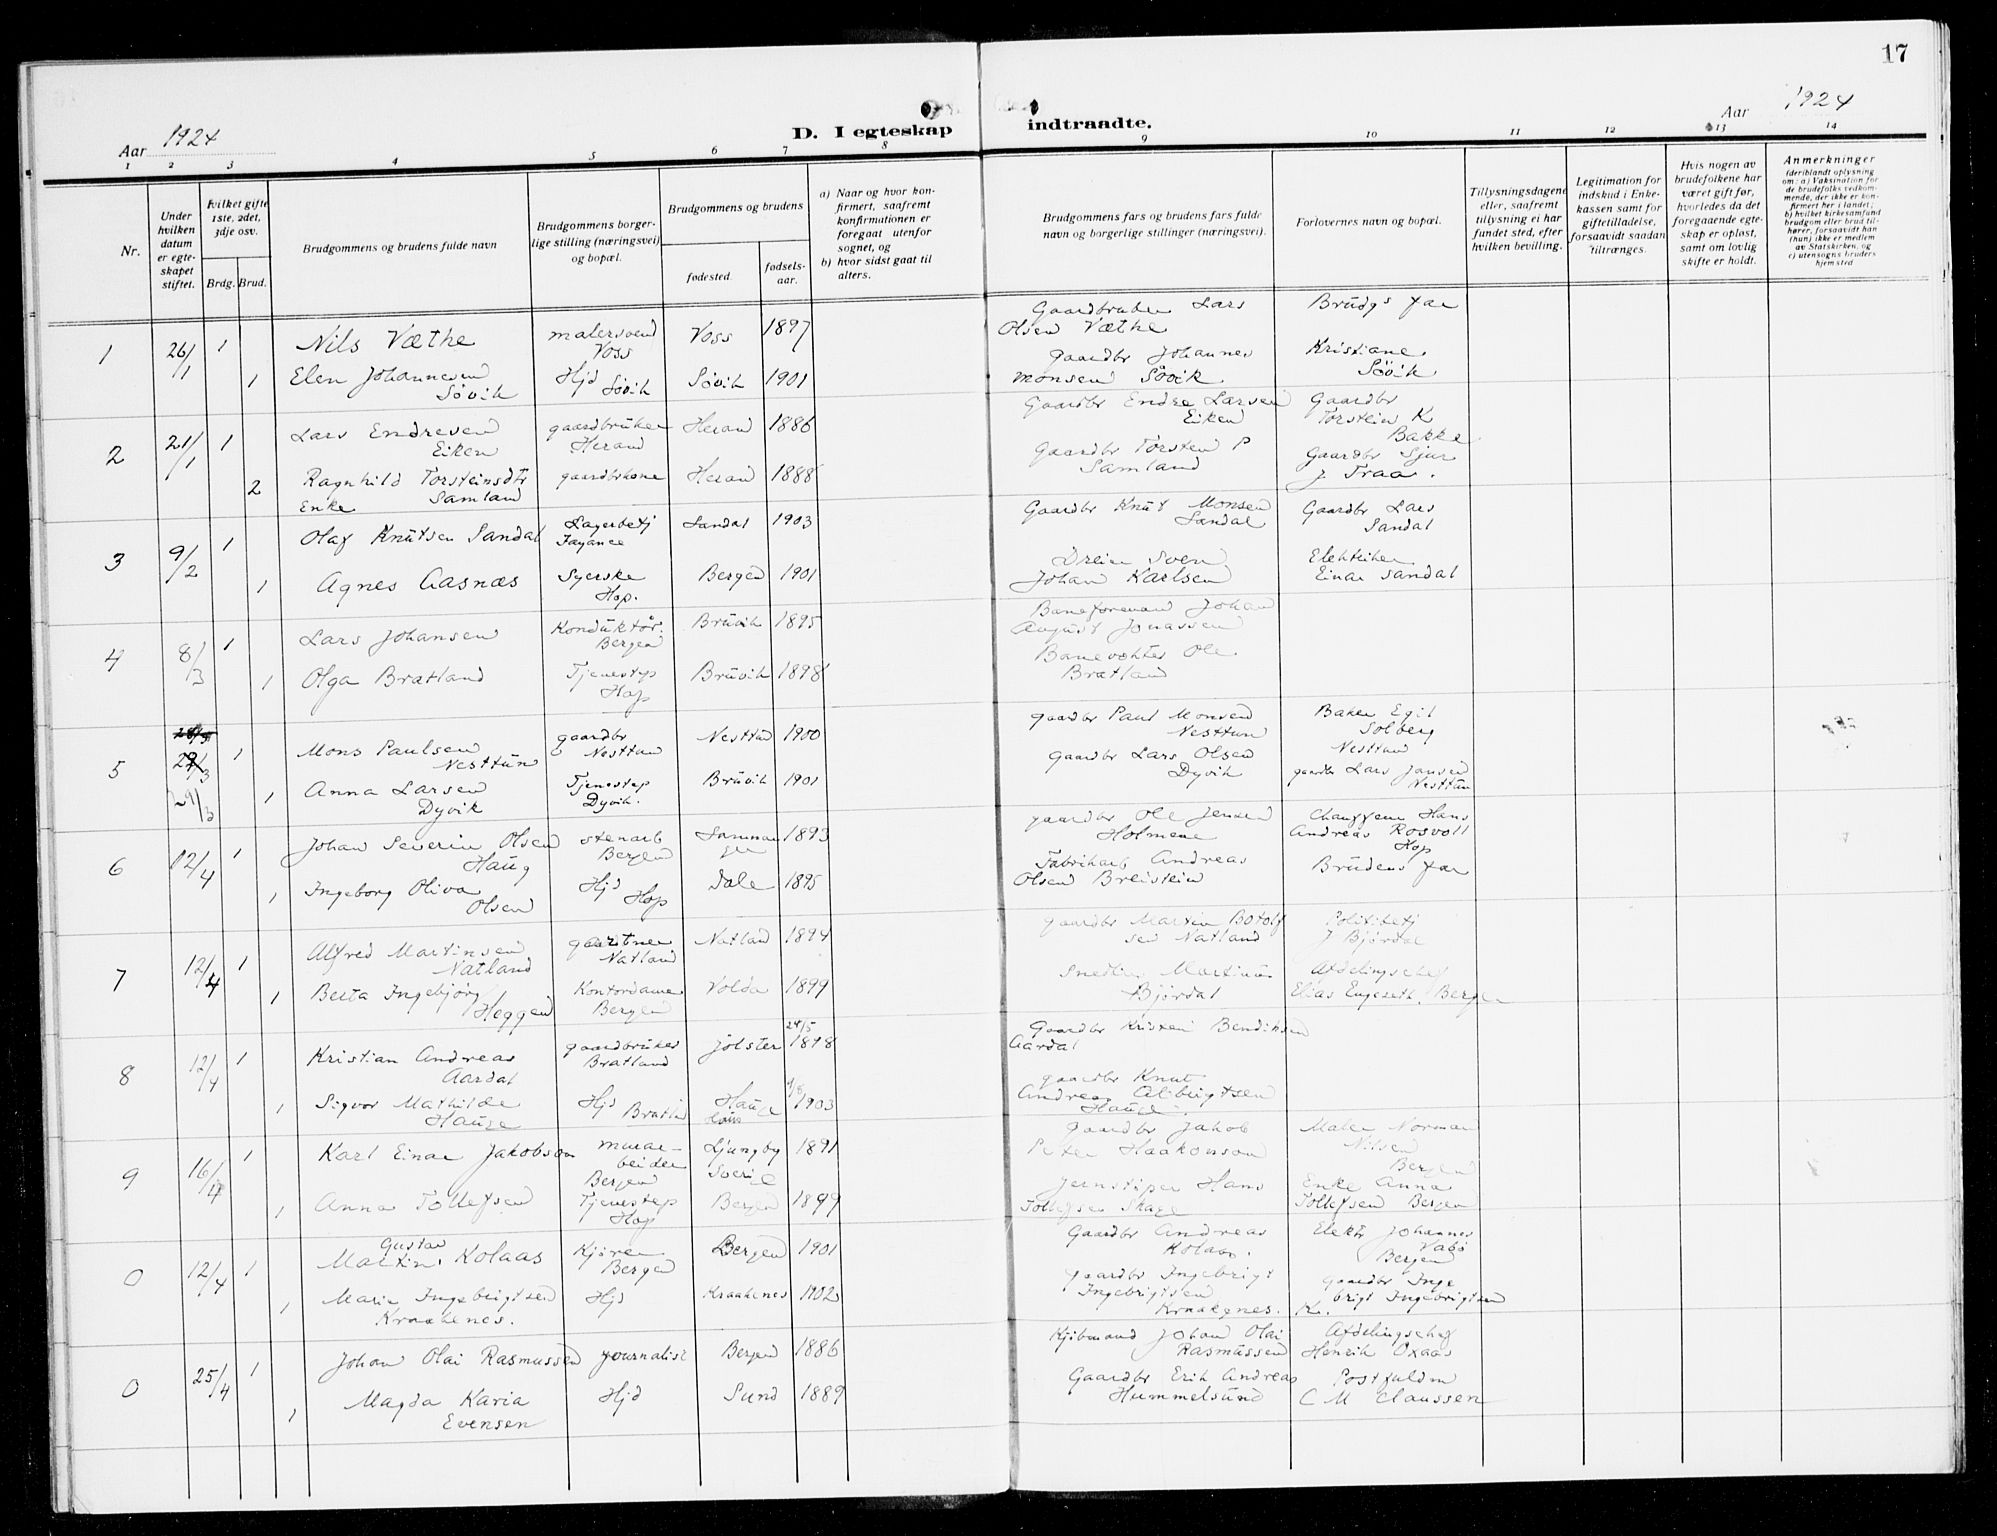 17
Aar 1924
D. I egteskap indtraadte.
Aar 1924
1 2 3 4 5 6 7 8 9 10 11 12 13 14
Nr.
Under hvilken datum er egteskapet stiftet.
Hvilket gifte 1ste, 2det, 3dje osv.
Brdg. Brud.
Brudgommens og brudens fulde navn
Brudgommens borgerlige stilling (næringsvei) og bopæl.
Brudgommens og brudens
fødested.
fødselsaar.
a) Naar og hvor konfirmert, saafremt konfirmationen er foregaat utenfor sognet, og
b) hvor sidst gaat til alters.
Brudgommens fars og brudens fars fulde navn og borgerlige stillinger (næringsvei).
Forlovernes navn og bopæl.
Tillysningsdagene eller, saafremt tillysning ei har fundet sted, efter hvilken bevilling.
Legitimation for indskud i Enkekassen samt for giftetilladelse, forsaavidt saadan tiltrænges.
Hvis nogen av brudefolkene har været gift før, hvorledes da det foregaaende egteskap er opløst, samt om lovlig skifte er holdt.
Anmerkninger (deriblandt oplysning om: a) Vaksination for de brudefolks vedkommende, der ikke er konfirmert her i landet; b) hvilket kirkesamfund brudgom eller brud tilhører, forsaavidt han (hun) ikke er medlem av Statskirken, og c) utensogns bruders hjemsted
1 26/1 1 Nils Væthe malersvend Voss Voss 1897 Gaardbruker Lars Olsen Væthe Brudgs far
1 Elen Johannesen Søvik Hjd Søvik Søvik 1901 Gaardbr Johannes Monsen Søvik Kristiane Søvik
2 21/1 1 Lars Endresen Eiken gaardbruker Herand Herand 1886 Gaardbr Endre Larsen Eiken Gaardbr Torstein K Bakke
2 Ragnhild Torsteinsdtr Samland Enke gaardbrkone Herand 1888 Gaardbr Torsten P Samland Gaardbr Sjur J Traa.
3 9/2 1 Olaf Knutsen Sandal Lagerbetj Fayance Sandal 1903 Gaardbr Knut Monsen Sandal Gaardbr Lars Sandal
1 Agnes Aasnæs Syerske Hop. Bergen 1901 Dreiersven Johan Karlsen Elektriker Einar Sandal
4 8/3 1 Lars Johansen Konduktør. Bergen Bruvik 1895 Baneformand Johan August Jonassen
1 Olga Bratland Tjenestep Hop Bruvik 1898 Banevokter Ole Bratland
5 29/3 1 Mons Paulsen Nesttun gaardbr Nesttun Nesttun 1900 gaardbr Paul Monsen Nesttun Baker Egil Solberg Nesttun
1 Anna Larsen Dyvik Tjenestep Dyvik. Bruvik 1901 gaardbr Lars Olsen Dyvik gaardbr Lars Jansen Nesttun
6 12/4 1 Johan Severin Olsen Haug stenarb Bergen 1893 gaardbr Ole Jensen Holmene Hans Andreas Rosvoll Hop
1 Ingeborg Oliva Olsen Hjd Hop Dale 1895 Fabrikarb Andreas Olsen Breistein Brudens far
7 12/4 1 Alfred Martinsen Natland gaartner Natland Natland 1894 gaardbr Martin Botolfsen Natland Politibetj J Bjørdal
1 Berta Ingebjørg Heggen Kontordame Bergen Volda 1899 Snedker Martinus Bjørdal Afdelingschef Elias Engeseth, Bergen
8 12/4 1 Kristian Andreas Aardal gaardbruker Bratland Jølster 24/5 1898 Gaardbr Kristen Bendiksen Aardal
1 Sigvor Mathilde Hauge Hjd Bratld Hauge 1903 gaardbr Knut Andreas Hauge.
9 16/4 1 Karl Einar Jakobson murarbeider Bergen Ljungby Sverige 1891 Gaardbr Jakob Peter Haakonson Maler Norman Nilsen Bergen
1 Anna Tollefsen Tjenestep Hop Bergen 1899 Jernstøper Hans Tollefsen Skage Enke Anna Tollefsen Bergen
0 12/4 1 Martin Gustav Kolaas Kjører Bergen Bergen 1901 Gaardbr Andreas Kolaas. Elektr Johannes Vabø Bergen
1 Marie Ingebrigtsen Kraakenes. Hjd Kraakenes 1902 gaardbr Ingebrigt Ingebrigtsen Kraakenes. gaardbr Ingebrigt Ingebrigtsen K.
0 25/4 1 Johan Olai Rasmussen journalist Bergen 1886 Kjøbmand Johan Olai Rasmussen Afdelingschef Henrik Oxaas
1 Magda Karia Evensen Hjd Sund 1889 Gaardbr Erik Andreas Hummelsund Postfuldm C M Claussen